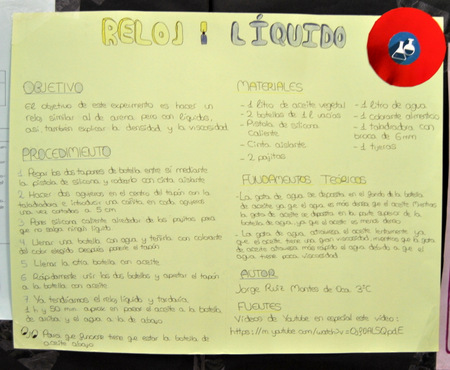 RELOJ LÍQUIDO
OBJETIVO
El objetivo de este experimento es hacer un
reloj similar al de arena, pero con líquidos,
así también explicar la densidad y la viscosidad.
PROCEDIMIENTO
1. Pegar los dos tapones de botella entre sí mediante
la pistola de silicona y rodearlo con cinta aislante
2. Hacer dos agujeros en el centro del tapón con la
taladradora e introducir una cañita en cada agujero
una vez cortadas a 5 cm
3. Poner silicona caliente alrededor de las pajitas para
que no salga ningún líquido
4. Llenar una botella con agua y teñirla con colorante
del color elegido. Después ponerle el tapón
5. Llenar la otra botella con aceite
6. Rápidamente unir las dos botellas y apretar el tapón
a la botella con aceite
7. Ya tendríamos el reloj líquido y tardaría
1 h y 50 min. aprox en pasar el aceite a la botella
de arriba y el agua a la de abajo
Para que funcione tiene que estar la botella de
aceite abajo
MATERIALES
- 1 litro de aceite vegetal
- 2 botellas de 1 l vacías
- Pistola de silicona
caliente
- Cinta aislante
- 2 pajitas
- 1 litro de agua
- 1 colorante alimenticio
- 1 taladradora con
broca de 6 mm
- 1 tijeras
FUNDAMENTOS TEÓRICOS
- La gota de agua se deposita en el fondo de la botella
de aceite ya que el agua es más densa que el aceite. Mientras
la gota de aceite se deposita en la parte superior de la
botella de agua ya que el aceite es menos denso
- La gota de agua atraviesa el aceite lentamente ya
que el aceite tiene una gran viscosidad mientras que la gota
de aceite atraviesa más rápido el agua debido a que el
agua tiene poca viscosidad
AUTOR
Jorge Ruiz Montes de Oca 3ºC
FUENTES
Vídeos de Youtube en especial este vídeo: